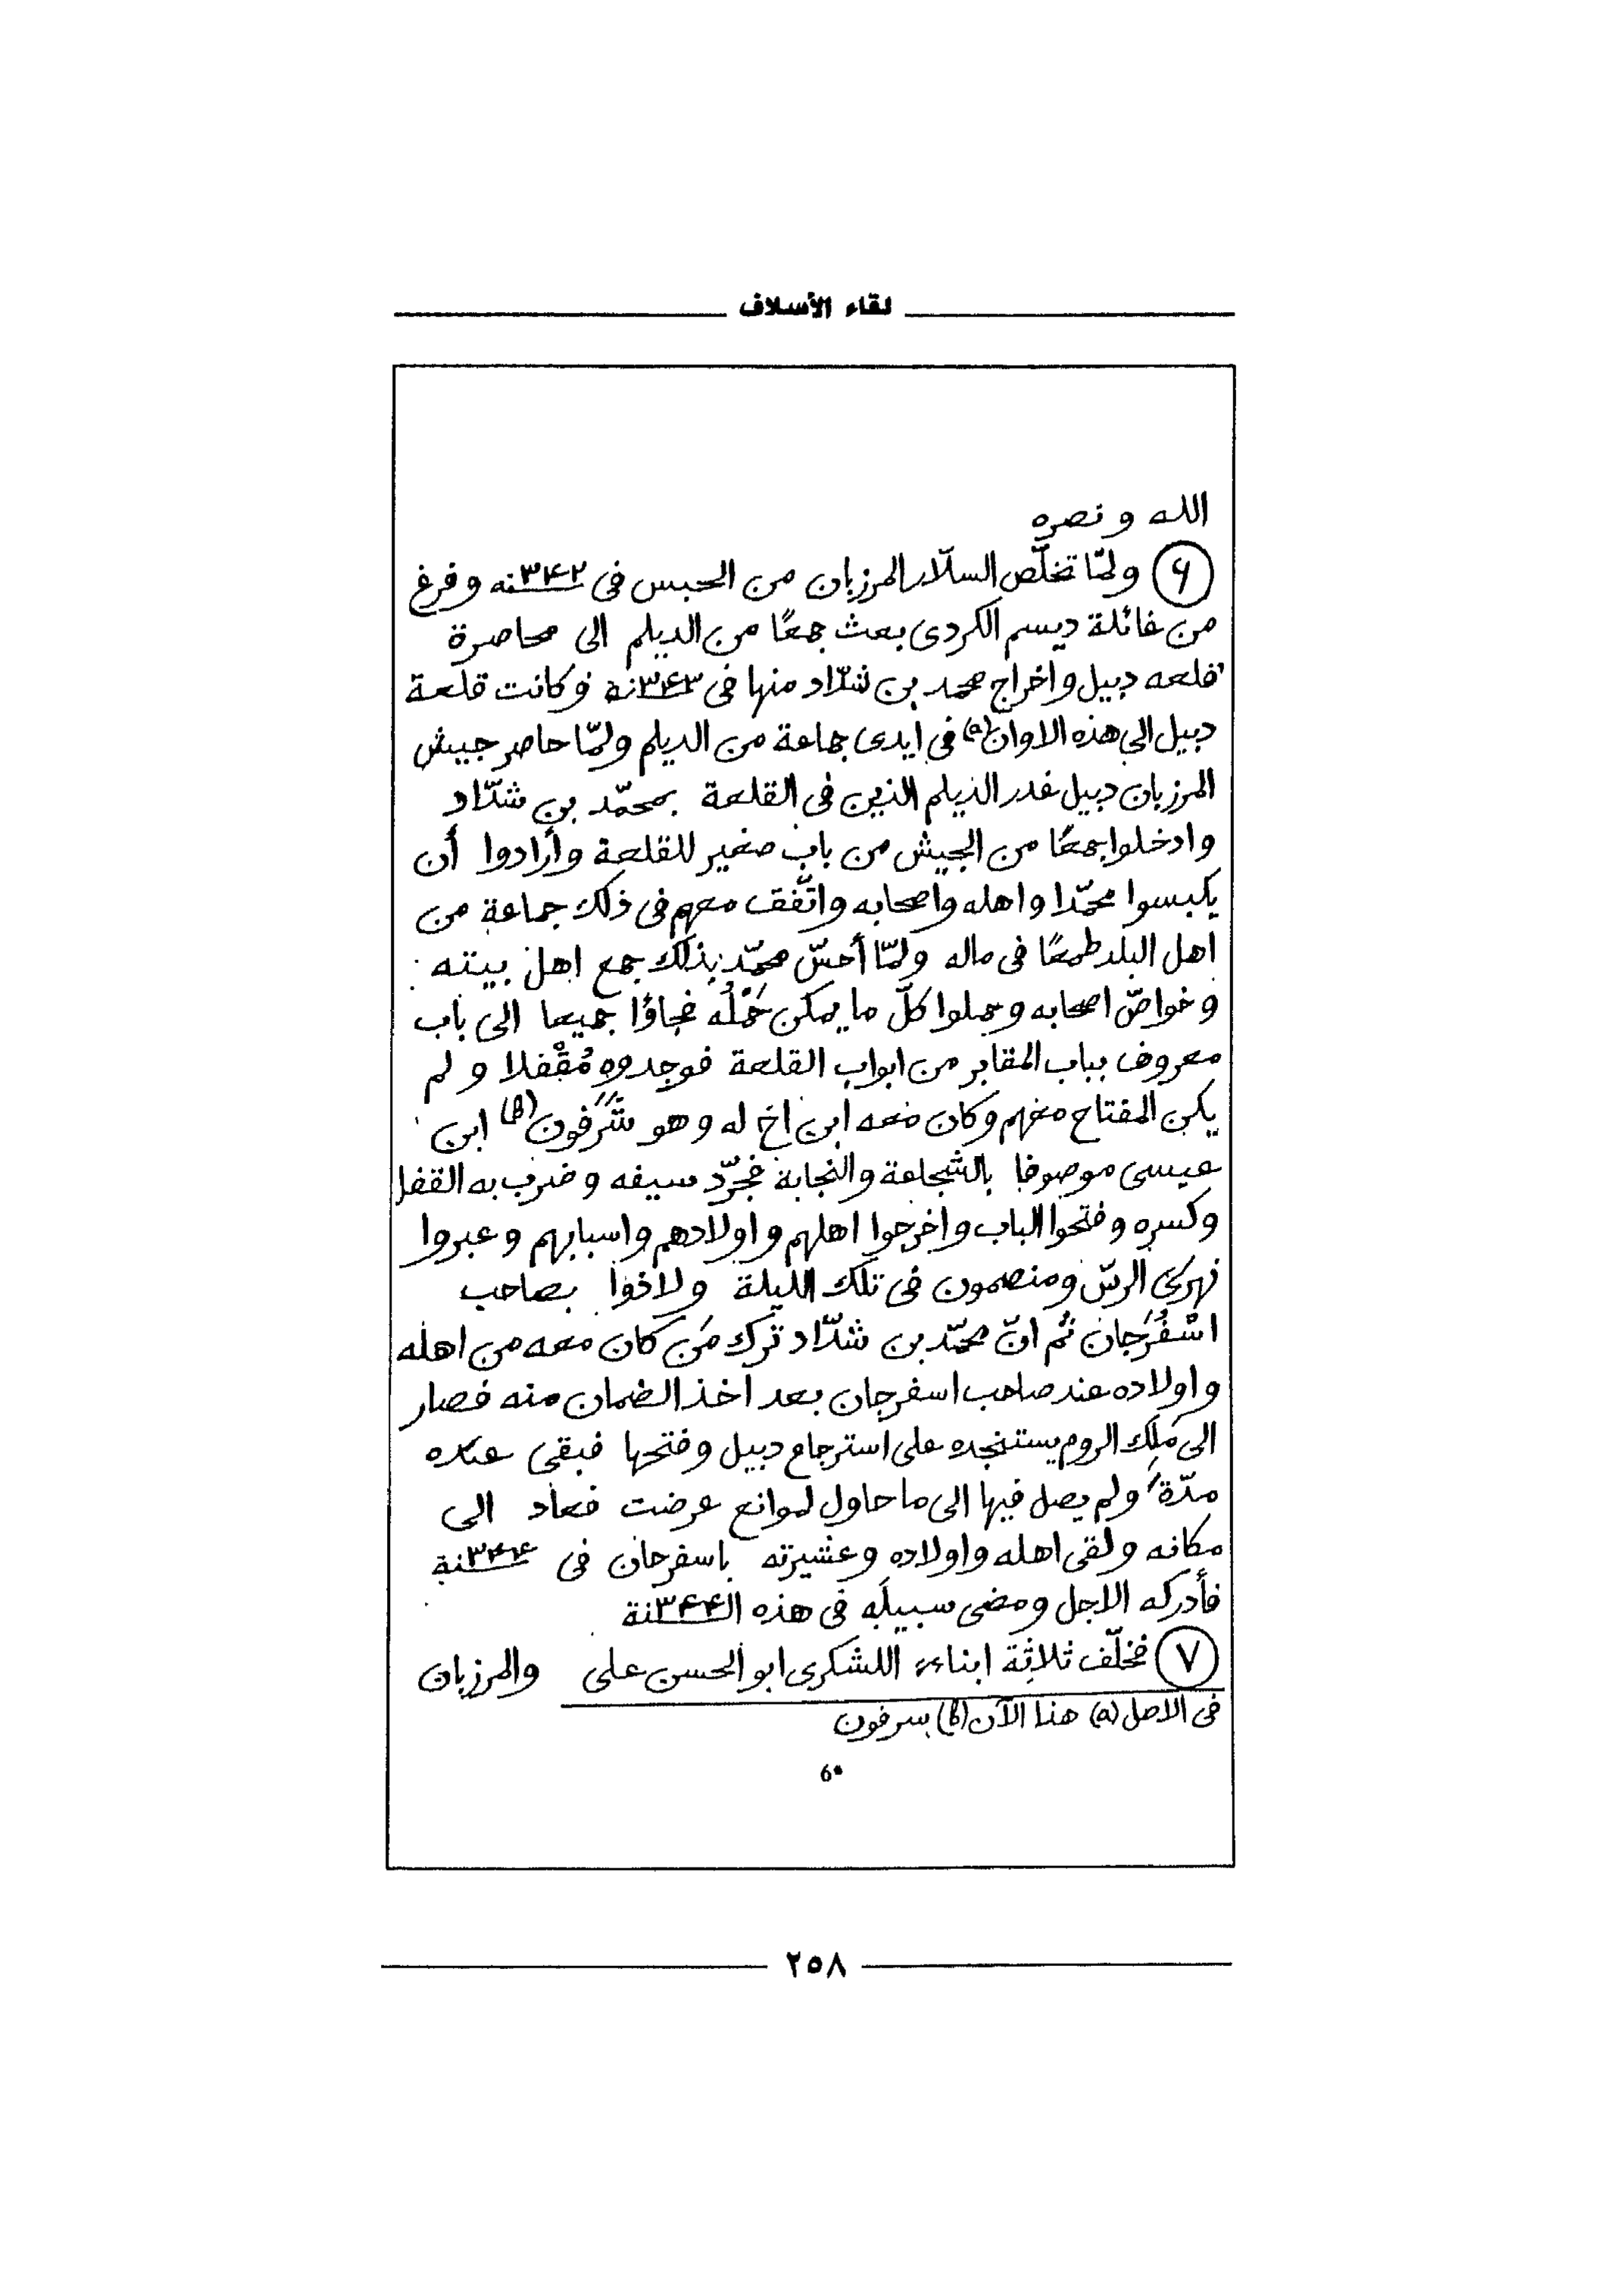 لقاء الأسلاف
الله و نصره
۶ ولمّا تخلّص السلّار المرزبان من الحبس فى سـ۳۴۲ـنه وفرغ
من غائلة ديسم الكردى بعث جمعًا من الديلم الى محاصرة
قلعه دبيل واخراج محمد بن شدّاد منها فى سـ۳۴۳ـنة وكانت قلعة
دبيل الى هذه الاوان(a) فى ايدى جماعة من الديلم ولمّا حاصر جيش
المرزبان دبيل غدر الديلم الذين فى القلعة بمحمّد بن شدّاد
وادخلوا جمعًا من الجيش من باب صغير للقلعة وأرادوا أن
يكبسوا محمّدا واهله واصحابه واتّفق معهم فى ذلك جماعة من
اهل البلد طمعًا فى ماله ولمّا أحسّ محمّد بذلك جمع اهل بيته
وخواصّ اصحابه وحملوا كلّ ما يمكن حَمْلُه فجاؤا جميعا الى باب
معروف بباب المقابر من ابواب القلعة فوجدوه مُقْفلا و لم
يكن المفتاح معهم وكان معه ابن اخ له وهو شَرَفون(b) ابن
عيسى موصوفا بالشجاعة والنجابة فجرّد سيفه و ضرب به القفل
وكسره وفتحوا الباب واخرجوا اهلهم و اولادهم واسبابهم وعبروا
نهرى الرسّ ومنصمون فى تلك الليلة ولاذوا بصاحب
اسْفُرَجان ثم انّ محمّد بن شدّاد ترك مَن كان معه من اهله
و اولاده عند صاحب اسفرجان بعد اخذ الضمان منه فصار
الى مَلِك الروم يستنجده على استرجاع دبيل وفتحها فبقى عنده
مدّة ولم يصل فيها الى ما حاول لموانع عرضت فعاد الى
مكانه ولقى اهله واولاده وعشيرته باسفرجان فى سـ۳۴۴ـنة
فأدركه الاجل ومضى سبيلَه فى هذه السـ۳۴۴ـنة
۷ فخلّف ثلاثة ابناء اللشكرى ابو الحسن على والمرزبان
فى الاصل (a) هذا الآن (b) سرفون
6*
٢٥٨